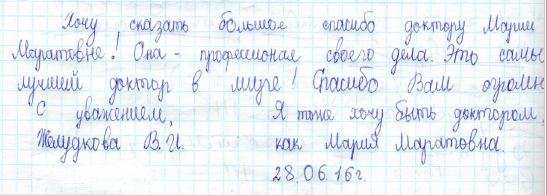 Хочу сказать большое спасибо доктору Марии
Маратовне! Она - профессионал своего дела. Это самы
лучший доктор в мире! Спасибо Вам огромн
С уважением,
Желудкова В.И.
Я тоже хочу быть доктором,
как Мария Маратовна.
28.06.16г.